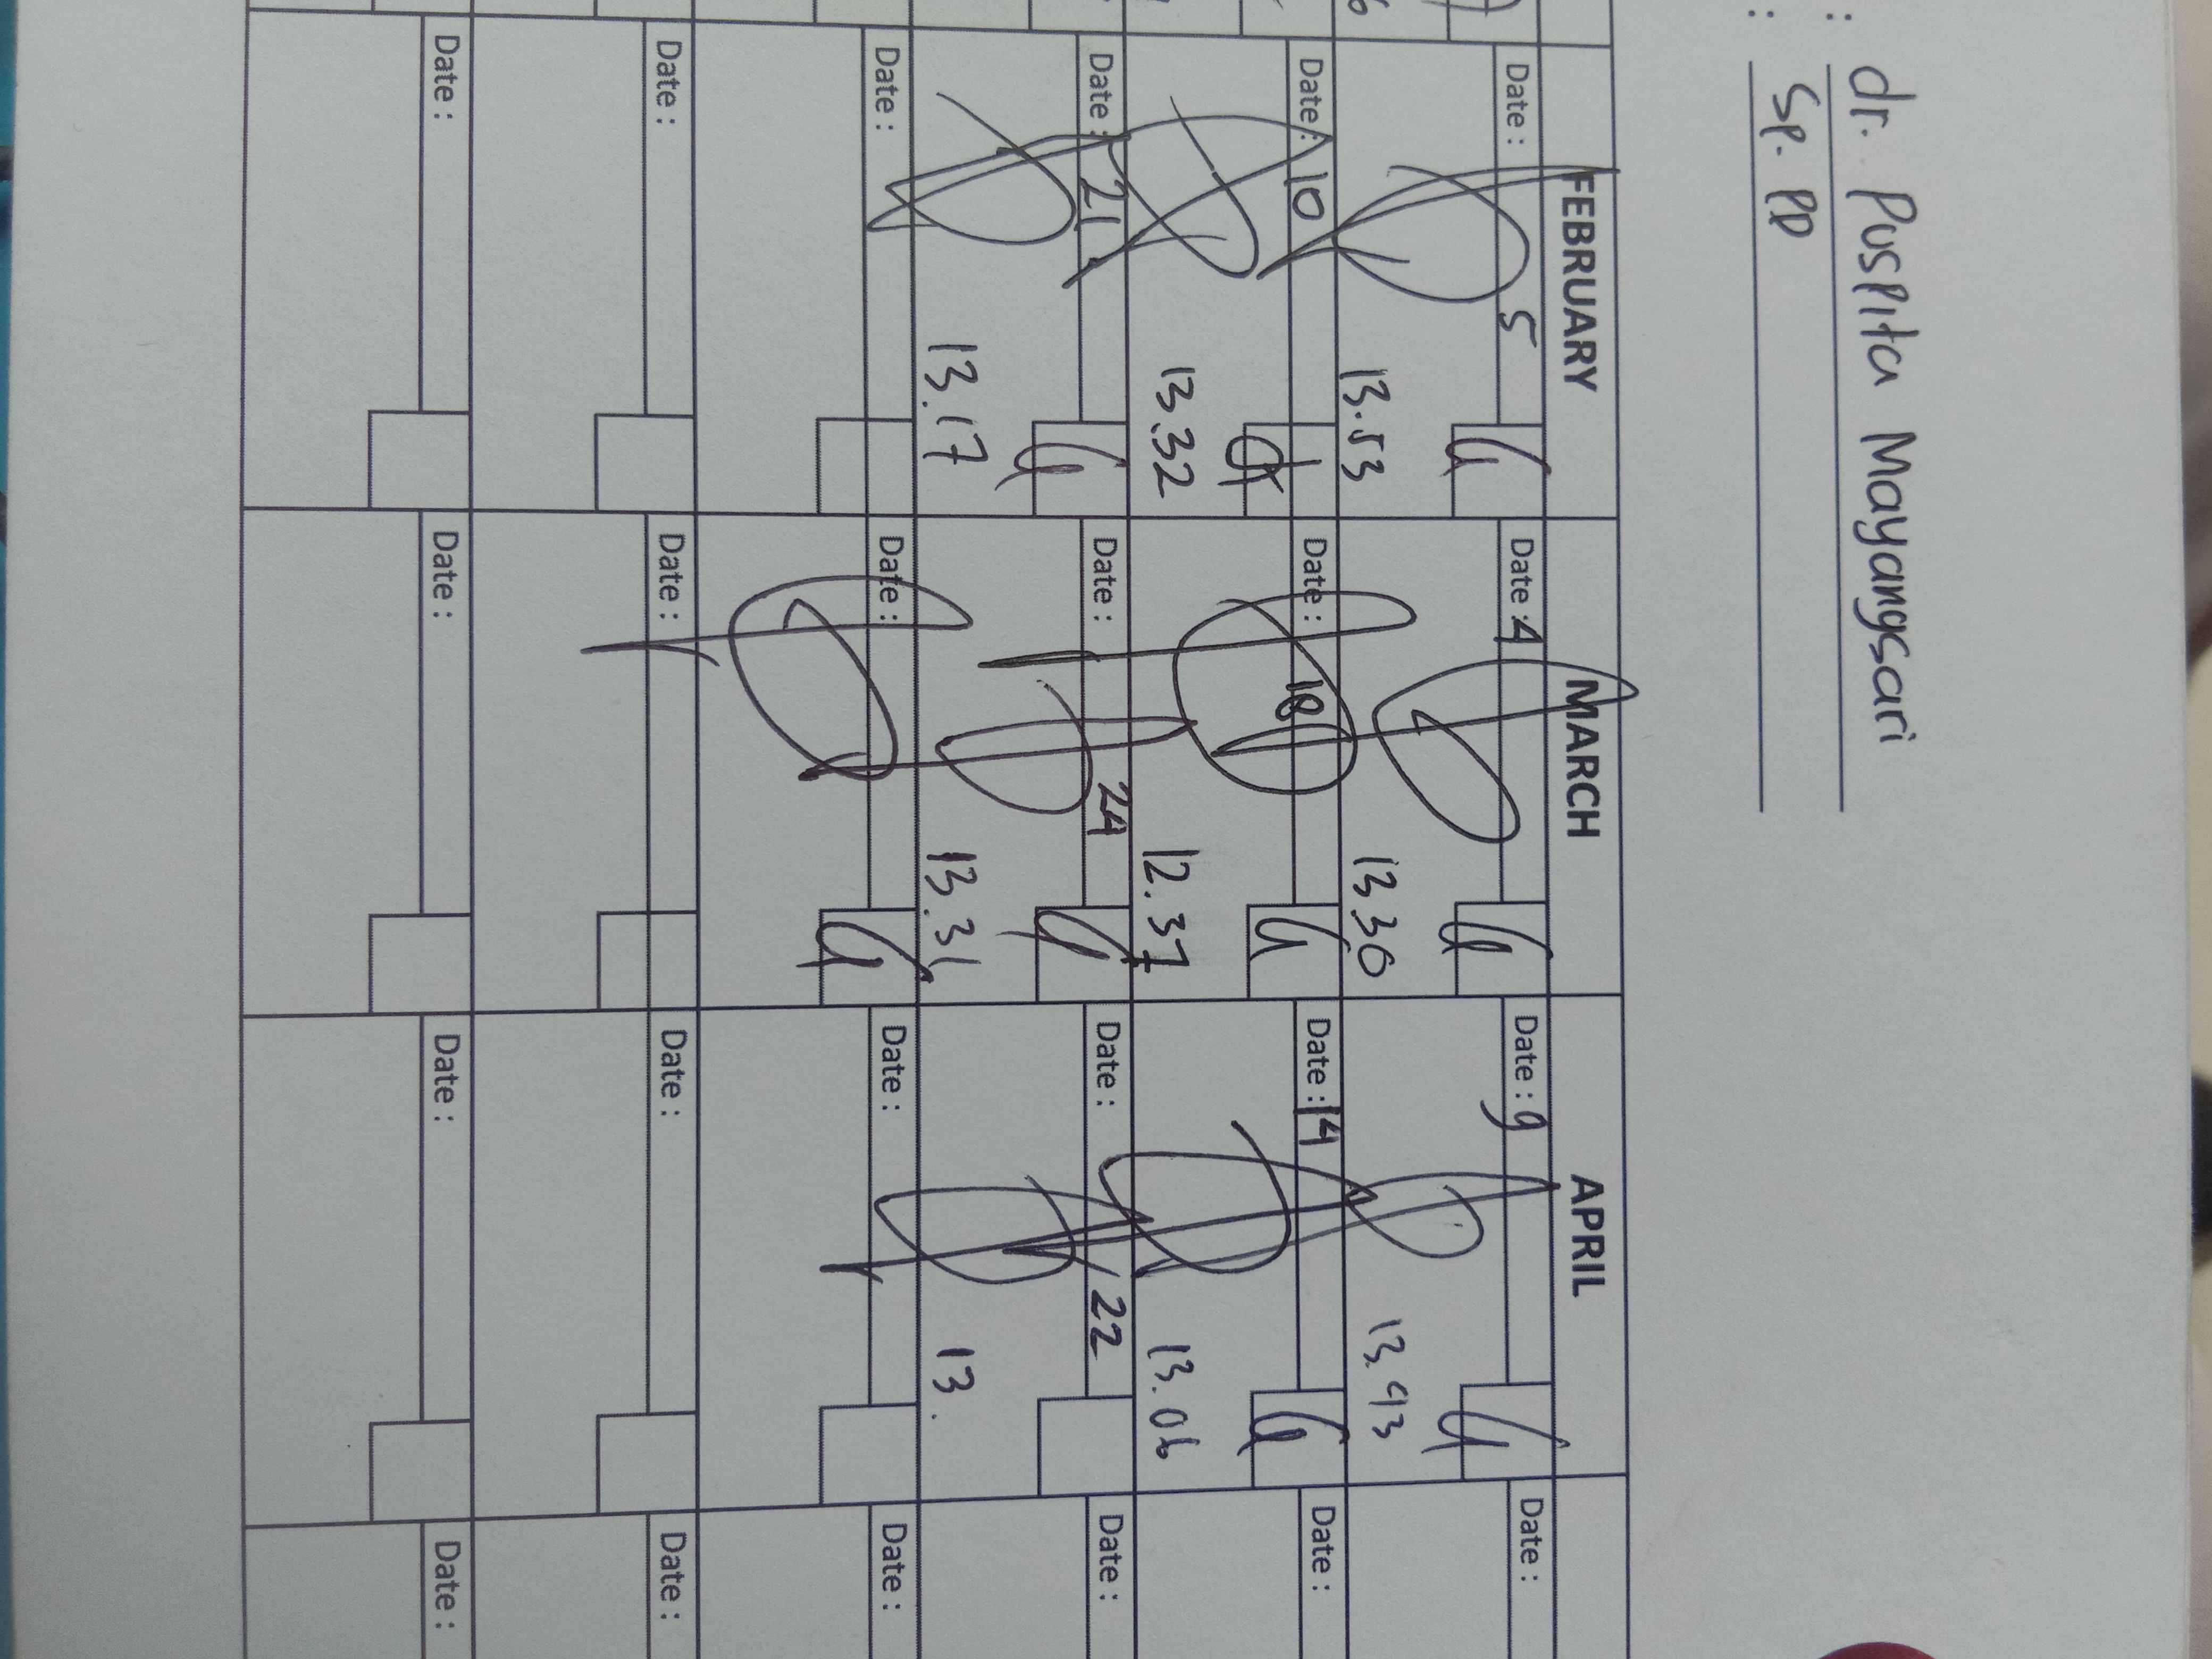 : dr. Puspita Mayangsari
: Sp. PD
FEBRUARY MARCH APRIL
Date : 5 Date : 4 Date : 9 Date :
13.53 13.30 13.43
Date : 10 Date : 18 Date : 14 Date :
13.32 12.37 13.06
Date : 21 Date : 24 Date : 22 Date :
13.17 13.31 13.
Date : Date : Date : Date :
Date : Date : Date : Date :
Date : Date : Date : Date :